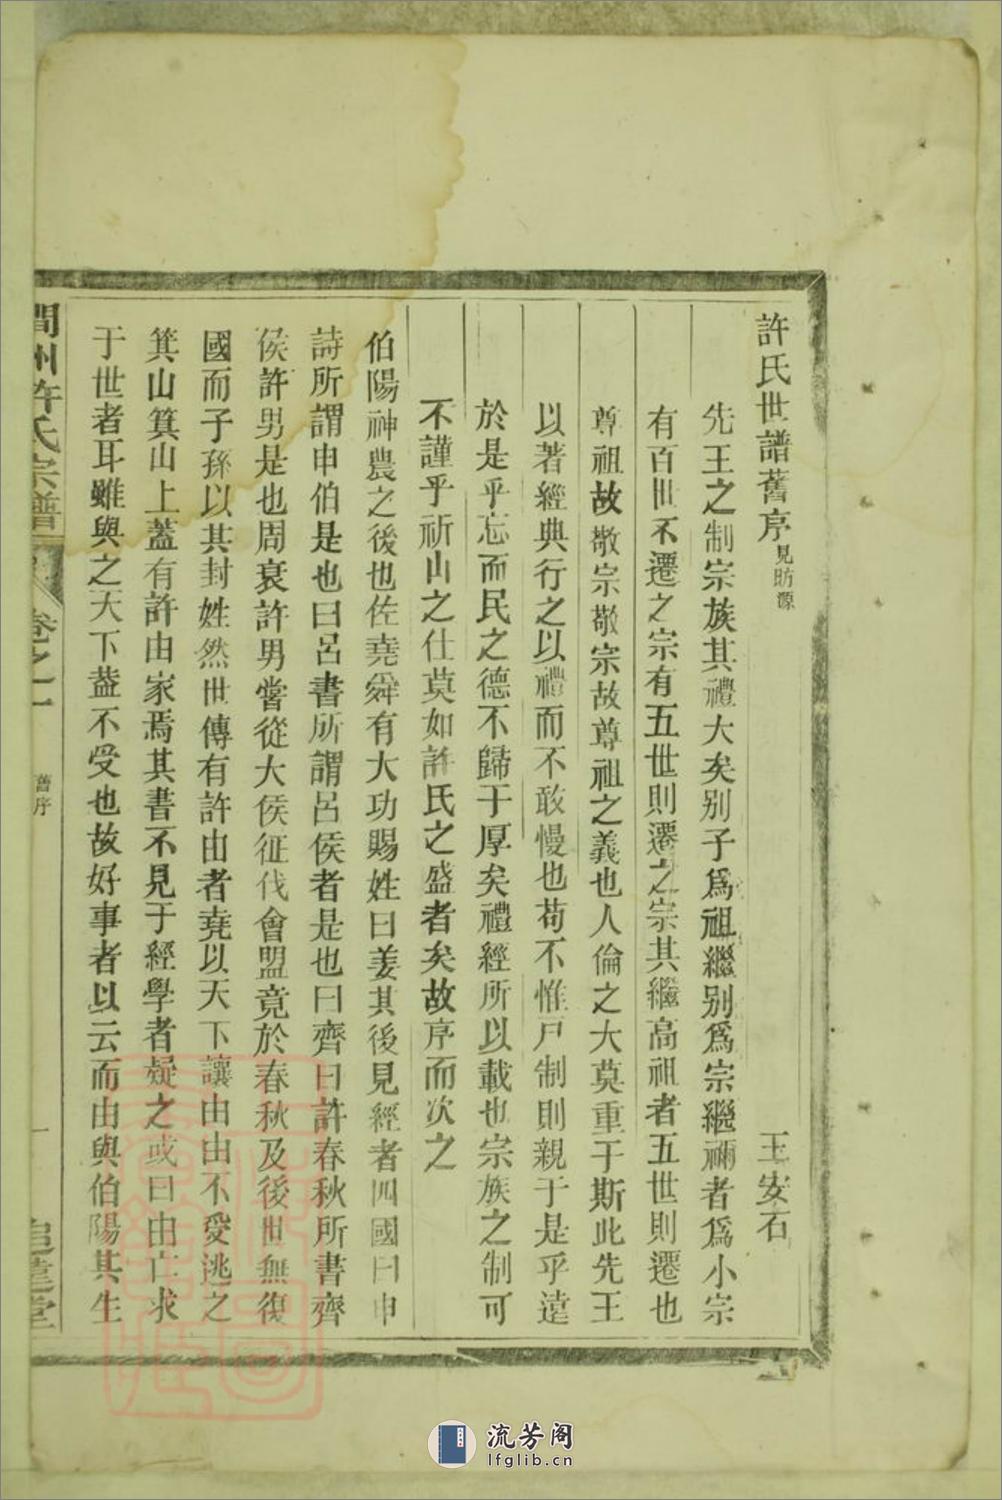 許氏世譜舊序 見昉源 王安石
先王之制宗族其禮大矣别子爲祖繼别爲宗繼禰者爲小宗
有百世不遷之宗有五世則遷之宗其繼高祖者五世則遷也
尊祖故敬宗敬宗故尊祖之義也人倫之大莫重于斯此先王
以著經典行之以禮而不敢慢也苟不惟尸制則親于是乎遠
於是乎忘而民之德不歸于厚矣禮經所以載也宗族之制可
不謹乎祈山之仕莫如許氏之盛者矣故序而次之
伯陽神農之後也佐堯舜有大功賜姓曰姜其後見經者四國曰申
詩所謂申伯是也曰呂書所謂呂侯者是也曰齊曰許春秋所書齊
侯許男是也周衰許男嘗從大侯征伐會盟竟於春秋及後世無復
國而子孫以其封姓然世傳有許由者堯以天下讓由由不受逃之
箕山箕山上蓋有許由家焉其書不見于經學者疑之或曰由亡求
于世者耳雖與之天下蓋不受也故好事者以云而由與伯陽其生
澗州許氏宗譜 卷之一 舊序 一 追遠堂
流芳阁
lfglib.cn